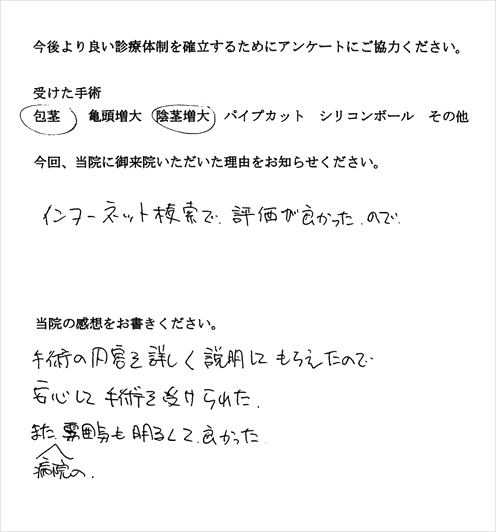 今後より良い診療体制を確立するためにアンケートにご協力ください。
受けた手術
包茎 亀頭増大 陰茎増大 パイプカット シリコンボール その他
今回、当院に御来院いただいた理由をお知らせください。
インターネット検索で、評価が良かった。ので
当院の感想をお書きください。
手術の内容を詳しく説明して もらえたので
安心して 手術を受けられた。
また、雰囲気も明るくて、良かった。
病院の、